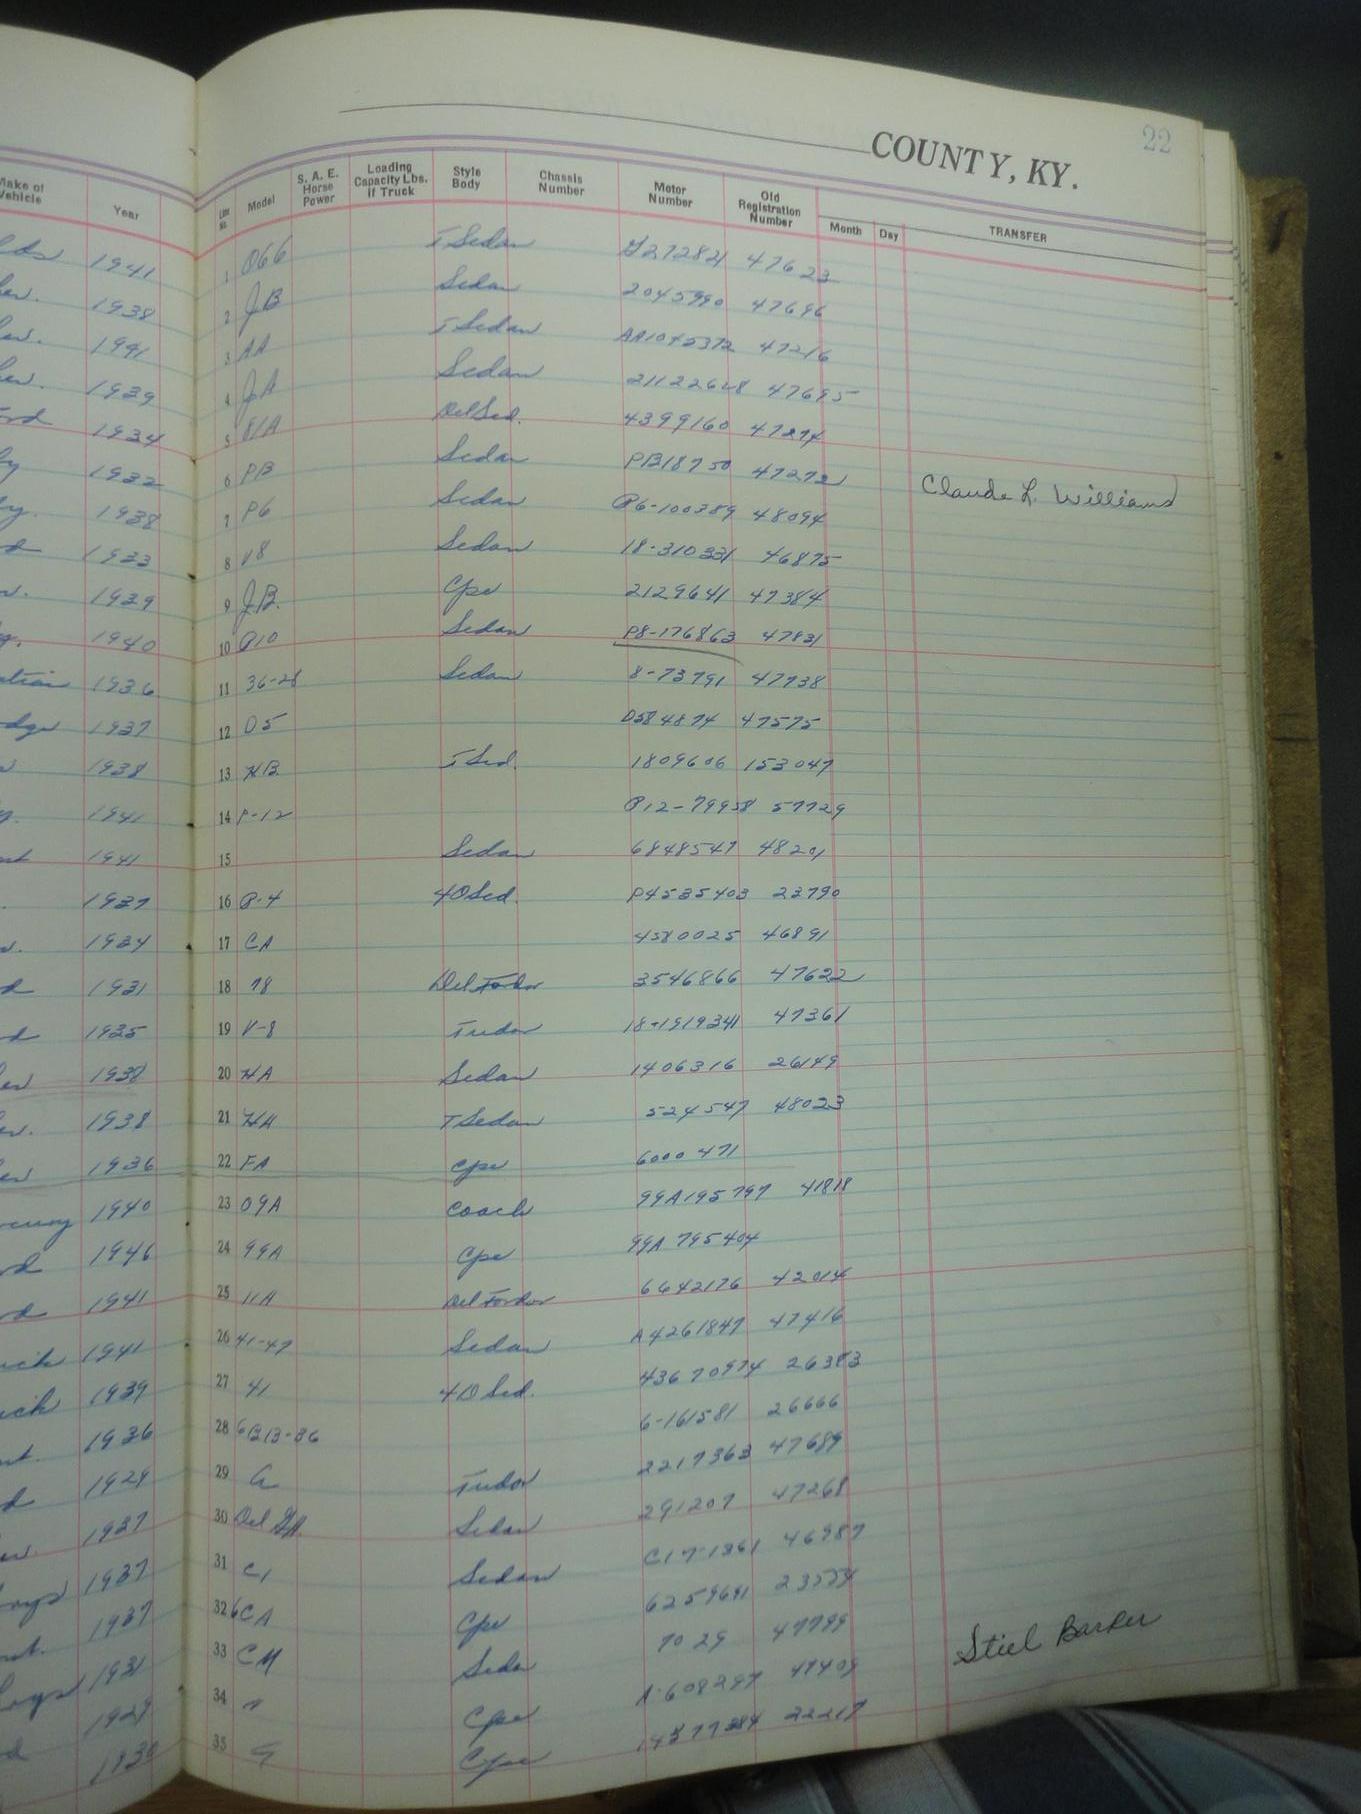 22
COUNTY, KY.
Make of Vehicle Year Line No. Model S. A. E. Horse Power Loading Capacity Lbs. if Truck Style Body Chassis Number Motor Number Old Registration Number Month Day TRANSFER
1941 1 066 T Sedan 47623
1938 2 JB Sedan 2045990 47696
1941 3 AA T Sedan AA1045372 47216
1939 4 JA Sedan 47695
1934 5 Del Sed. 4399160 47274
1932 6 PB Sedan PB18750 47272
1938 7 P6 Sedan P6-100389 48094 Claude L. Williams
1933 8 V8 Sedan 18-310331 46875
1939 9 JB. Cpe 2129641 47384
1940 10 P10 Sedan P8-176863 47831
1936 11 36-28 Sedan 8-73791 47738
1937 12 D5 D584874 47575
1938 13 HB T Sed. 1809606 153047
1941 14 P-12 P12-79958 57729
1941 15 Sedan 6848547 48201
1937 16 P-4 4D Sed. P4535403 23790
1934 17 CA 4580025 46891
1931 18 78 Del Fordor 3546866 47622
1935 19 V-8 Tudor 18-1919341 47361
1938 20 HA Sedan 1406316 26149
1938 21 HA T Sedan 524547 48023
1936 22 FA Cpe 6000471
1940 23 09A Coach 99A195797 41818
1946 24 99A Cpe 99A 795404
1941 25 11A Del Fordor 6642176 42014
1941 26 41-47 Sedan A4261847 47416
1939 27 41 4D Sed. 43670974 26383
1936 28 6BB-36 6-161581 26666
1929 29 Tudor 2217363 47689
1937 30 Del GA Sedan 291207 47268
1937 31 C1 Sedan 46987
1937 32 6CA Cpe 6259691
1931 33 CM Sedan 7029 47799
1929 34 " Cpe A-608297 47409 Stiel Barker
35 Cpe 22217